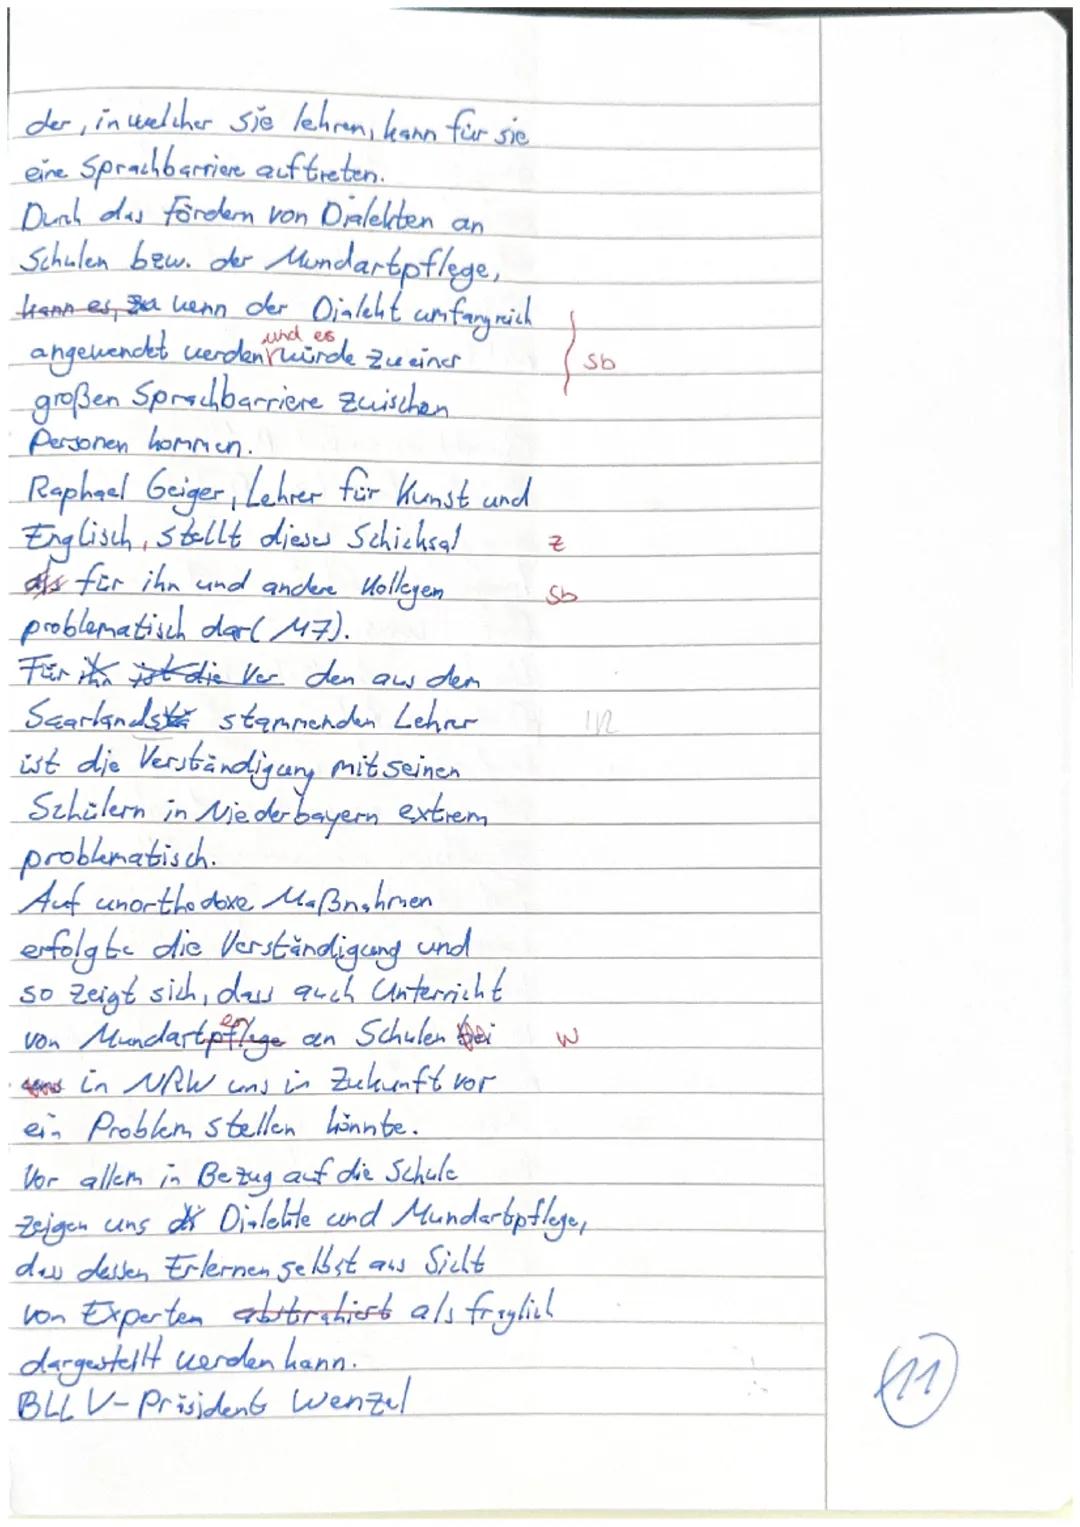 der, in welcher sie lehren, kann für sie
eine Sprachbarriere auftreten.
Durch das Fördern von Dialekten an
Schulen bzw. der Mundartpflege,
kann es, zu wenn der Dialekt umfangreich
und es
angewendet werden würde zu einer
sb
großen Sprachbarriere zwischen
Personen kommen.
Raphael Geiger, Lehrer für Kunst und
Englisch, stellt dieses Schicksal z
als für ihn und andere Kollegen sb
problematisch dar (M7).
Für ihn ist die Ver den aus dem
Saarlands stammenden Lehrer
ist die Verständigung mit seinen
Schülern in Niederbayern extrem
problematisch.
Auf unorthodoxe Maßnahmen
erfolgte die Verständigung und
so zeigt sich, dass auch Unterricht
en
von Mundartpflege an Schulen bei w
uns in NRW uns in Zukunft vor
ein Problem stellen könnte.
Vor allem in Bezug auf die Schule
zeigen uns di Dialekte und Mundartpflege,
dass dessen Erlernen selbst aus Sicht
von Experten abstrahiert als fraglich
dargestellt werden kann.
BLLV-Präsident Wenzel
11